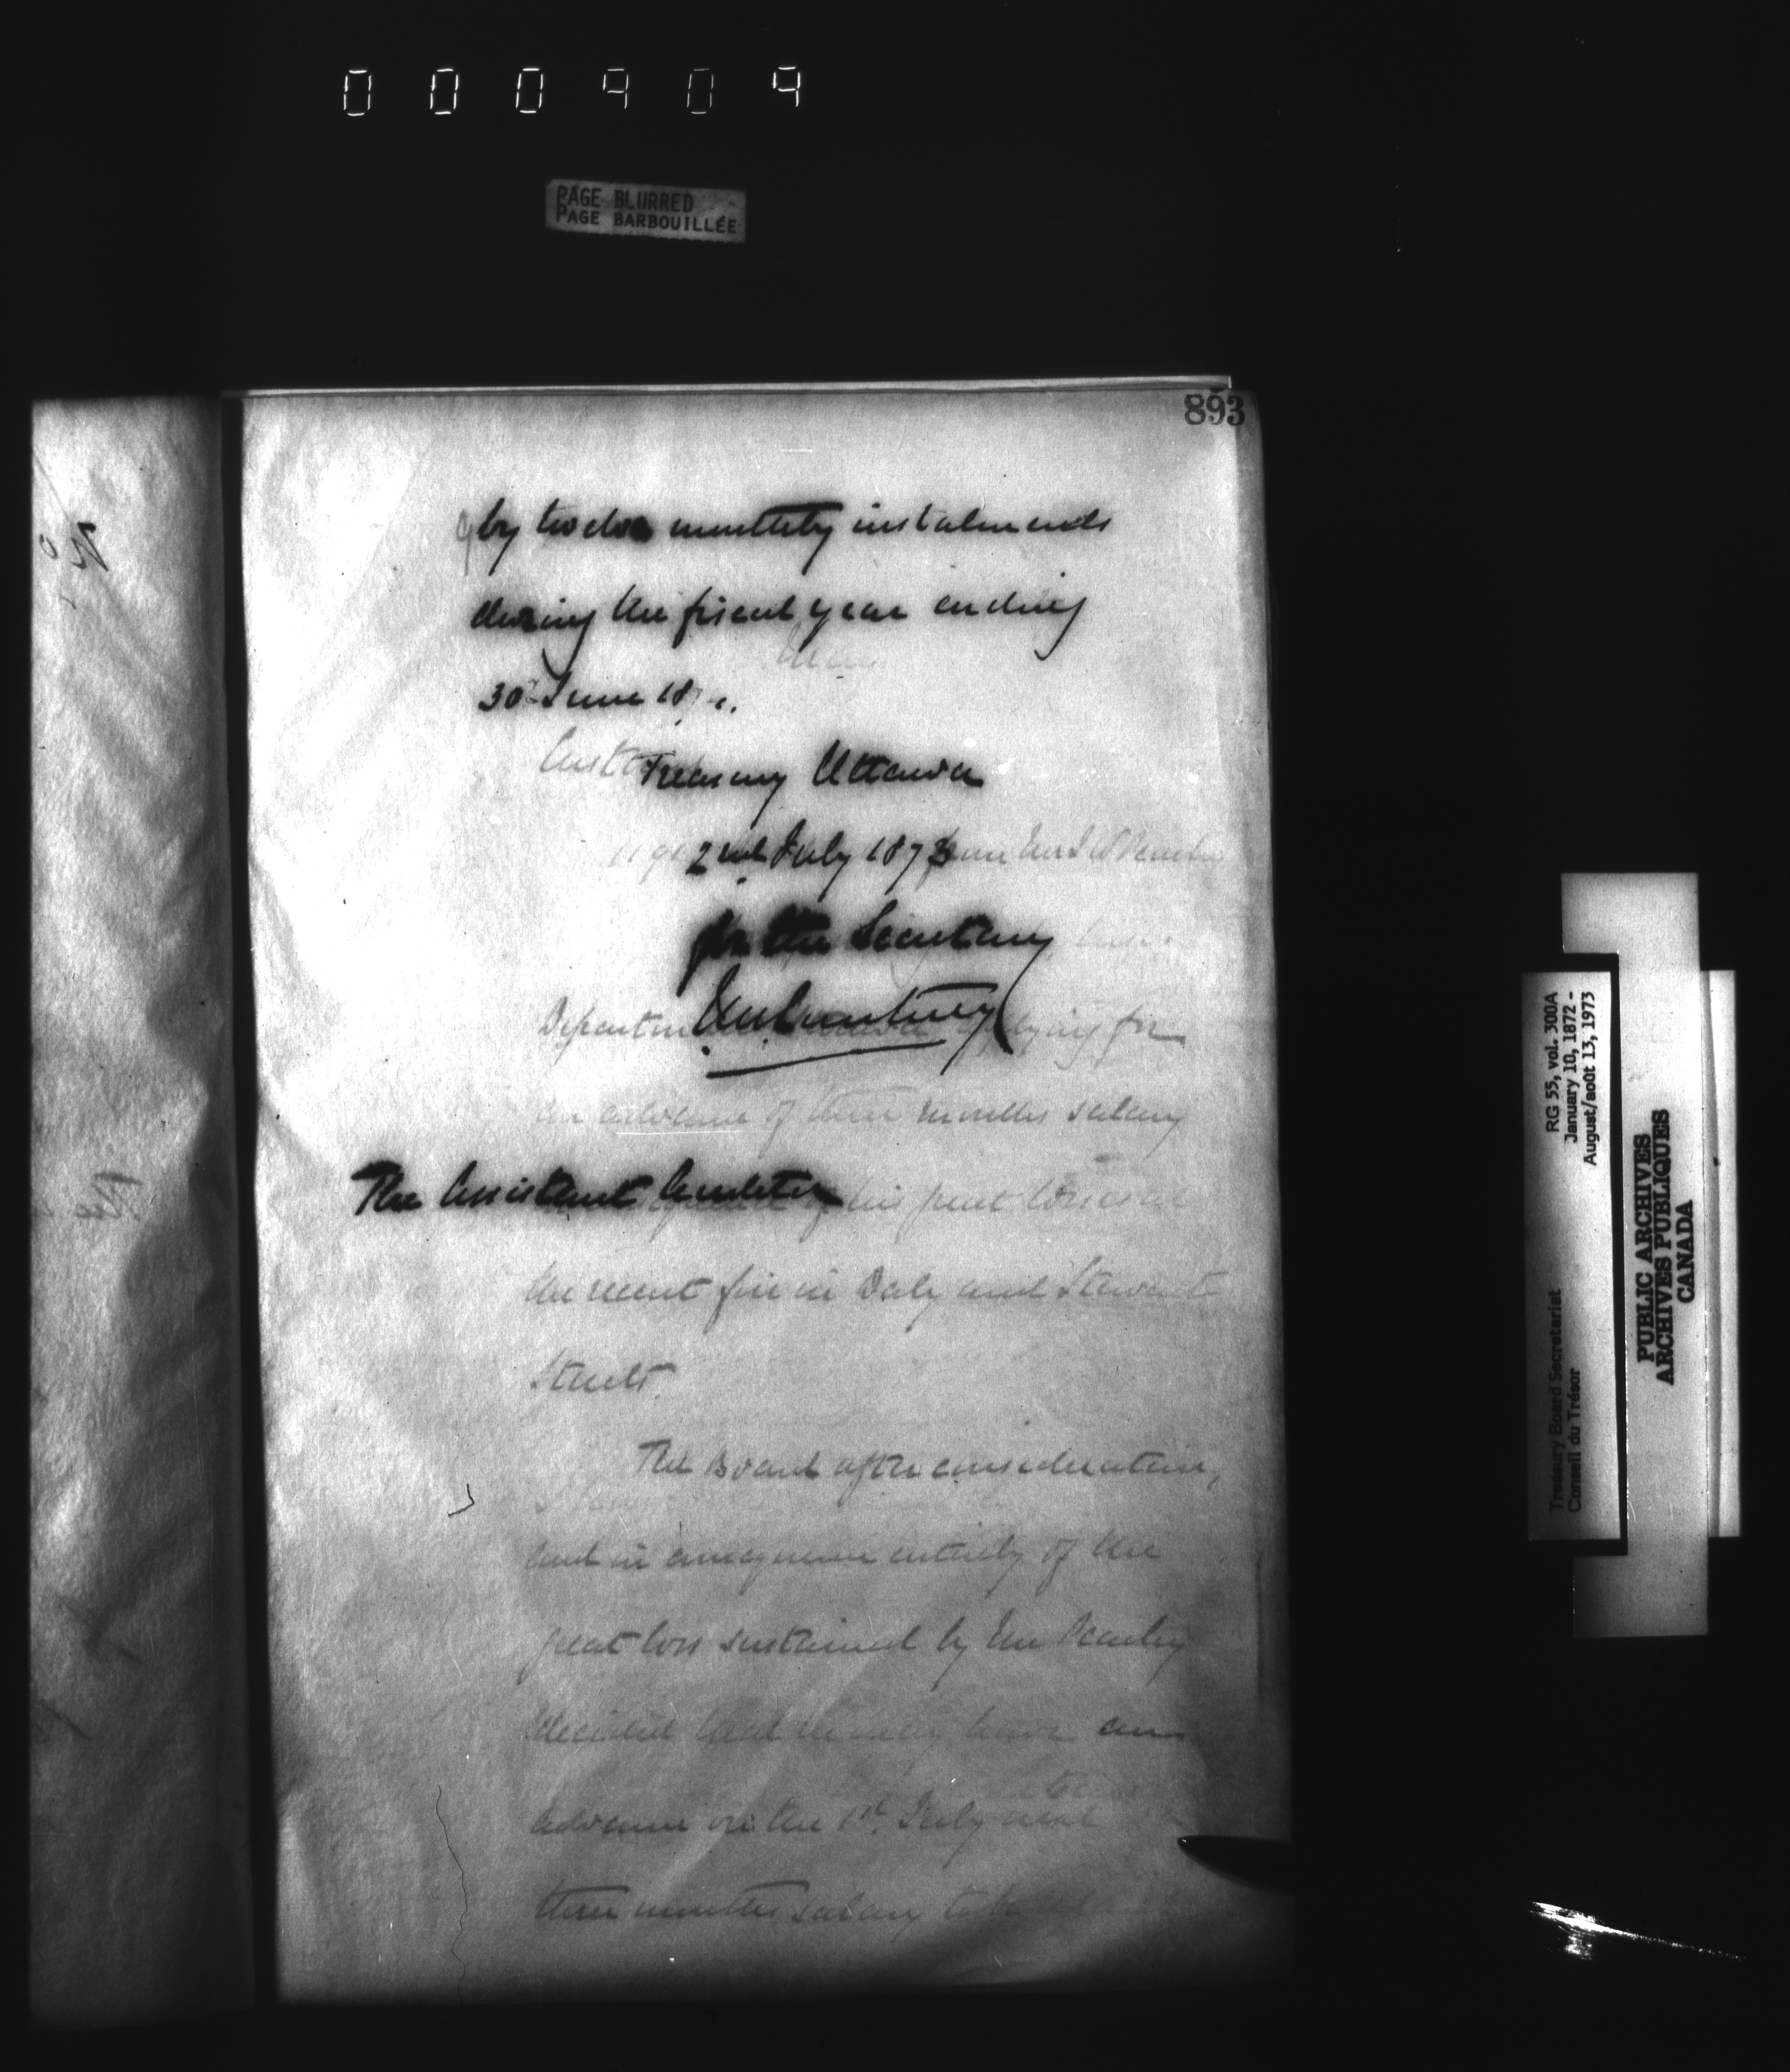 000909
PAGE BLURRED
PAGE BARBOUILLÉE
893
by twelve monthly instalments
during the fiscal year ending
30 June 18
Treasury Ottawa
2nd July 1873
for the Secretary
Department applying for
an advance of three months salary
The Assistant Auditor
of his great losses at
the recent fire in Daly and Stewart
Streets.
The Board after consideration,
and in consequence entirely of the
great loss sustained by Mr
decided that he may have an
advance on the 1st. July next
three months salary to be
RG 55, vol. 300A
January 10, 1872 -
August/août 13, 1973
Treasury Board Secretariat
Conseil du Trésor
PUBLIC ARCHIVES
ARCHIVES PUBLIQUES
CANADA